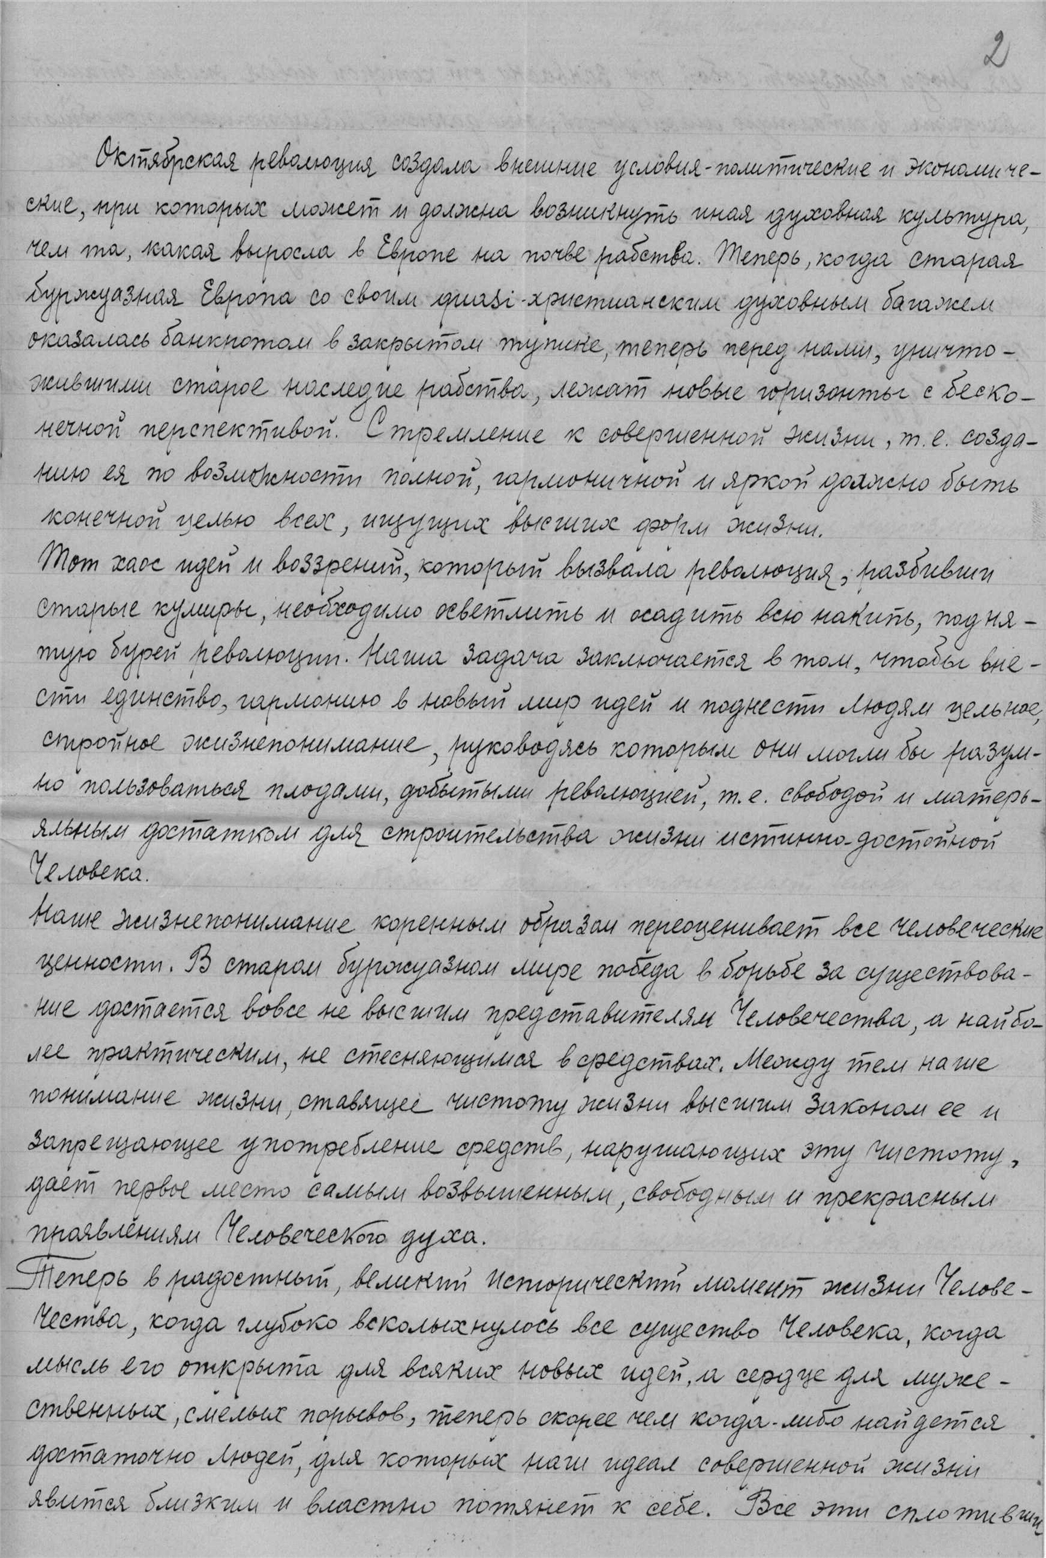 2
Октябрская революция создала внешние условия-политические и экономиче-
ские, при которых может и должна возникнуть иная духовная культура,
чем та, какая выросла в Европе на почве рабства. Теперь, когда старая
буржуазная Европа со своим quasi-христианским духовным багажем
оказалась банкротом в закрытом тупике, теперь перед нами, уничто-
жившими старое наследие рабства, лежат новые горизонты с беско-
нечной перспективой. Стремление к совершенной жизни, т.е. созда-
нию ея по возможности полной, гармоничной и яркой должно быть
конечной целью всех, ищущих высших форм жизни.
Тот хаос идей и воззрений, который вызвала революция, разбивши
старые кумиры, необходимо осветлить и осадить всю накипь, подня-
тую бурей революции. Наша задача заключается в том, чтобы вне-
сти единство, гармонию в новый мир идей и поднести людям цельное,
стройное жизнепонимание, руководясь которым они могли бы разум-
но пользоваться плодами, добытыми революцией, т.е. свободой и матерь-
яльным достатком для строительства жизни истинно-достойной
Человека.
Наше жизнепонимание коренным образом переоценивает все человеческие
ценности. В старом буржуазном мире победа в борьбе за существова-
ние достается вовсе не высшим представителям Человечества, а найбо-
лее практическим, не стесняющимся в средствах. Между тем наше
понимание жизни, ставящее чистоту жизни высшим законом ее и
запрещающее употребление средств, нарушающих эту чистоту,
дает первое место самым возвышенным, свободным и прекрасным
проявлениям Человеческого духа.
Теперь в радостный, великий исторический момент жизни Челове-
чества, когда глубоко всколыхнулось все существо Человека, когда
мысль его открыта для всяких новых идей, а сердце для муже-
ственных, смелых порывов, теперь скорее чем когда-либо найдется
достаточно людей, для которых наш идеал совершенной жизни
явится близким и властно потянет к себе. Все эти сплотивши